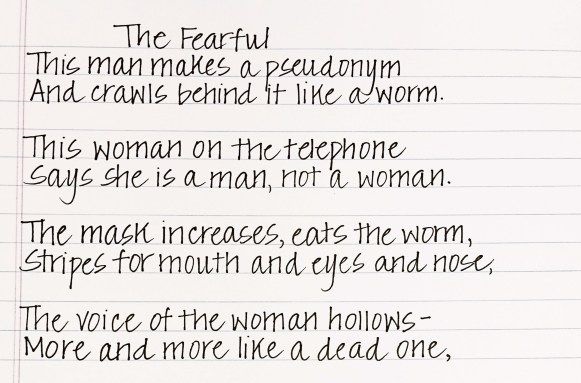 The Fearful
This man makes a pseudonym
And crawls behind it like a worm.
This woman on the telephone
Says she is a man, not a woman.
The mask increases, eats the worm,
Stripes for mouth and eyes and nose,
The voice of the woman hollows-
More and more like a dead one,